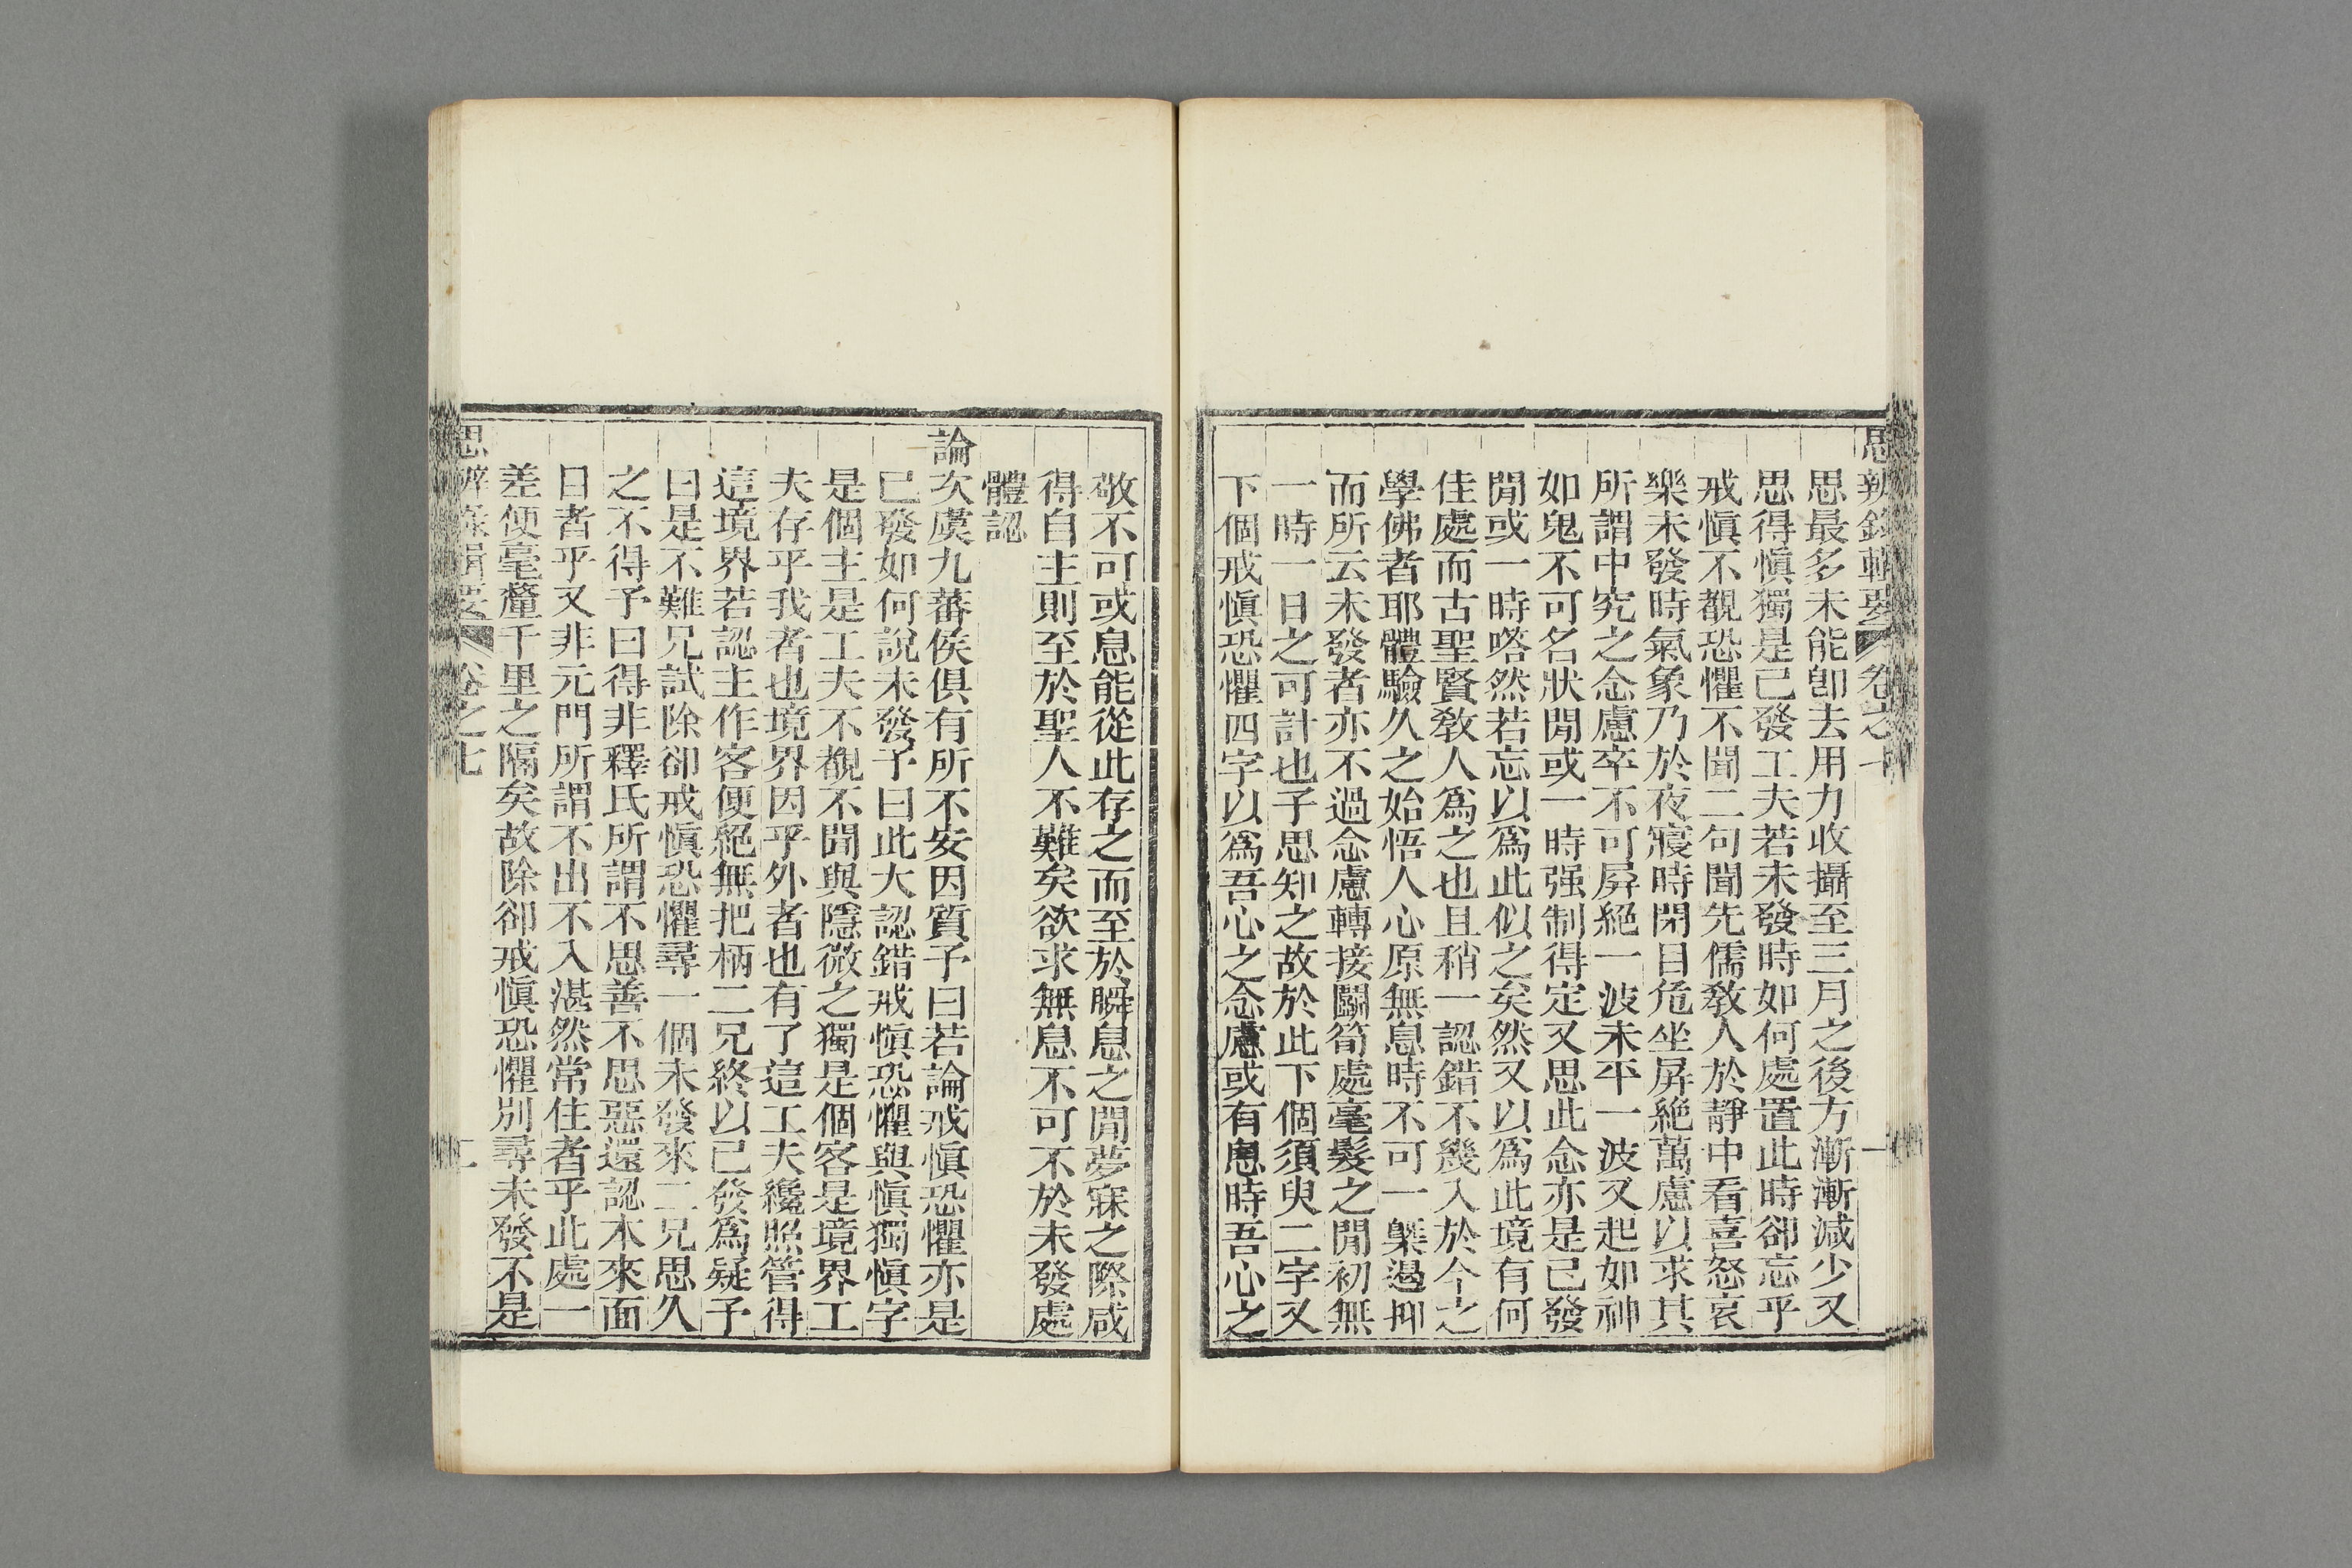 思辨錄輯要 卷之七 一
思最多未能卽去用力收攝至三月之後方漸漸減少又
思得愼獨是已發工夫若未發時如何處置此時卻忘乎
戒愼不覩恐懼不聞二句聞先儒敎人於靜中看喜怒哀
樂未發時氣象乃於夜寢時閉目危坐屏絕萬慮以求其
所謂中究之念慮卒不可屛絕一波未平一波又起如神
如鬼不可名狀閒或一時强制得定又思此念亦是已發
閒或一時嗒然若忘以爲此似之矣然又以爲此境有何
佳處而古聖賢敎人爲之也且稍一認錯不幾入於今之
學佛者耶體驗久之始悟人心原無息時不可一槩遏抑
而所云未發者亦不過念慮轉接鬭筍處毫髮之閒初無
一時一日之可計也子思知之故於此下個須臾二字又
下個戒愼恐懼四字以爲吾心之念慮或有息時吾心之
敬不可或息能從此存之而至於瞬息之閒夢寐之際咸
得自主則至於聖人不難矣欲求無息不可不於未發處
體認
論次虞九蕃侯俱有所不安因質予曰若論戒愼恐懼亦是
已發如何說未發予曰此大認錯戒愼恐懼與愼獨愼字
是個主是工夫不覩不聞與隱微之獨是個客是境界工
夫存乎我者也境界因乎外者也有了這工夫纔照管得
這境界若認主作客便絕無把柄二兄終以已發爲疑予
曰是不難兄試除卻戒愼恐懼尋一個未發來二兄思久
之不得予曰得非釋氏所謂不思善不思惡還認本來面
目者乎又非元門所謂不出不入湛然常住者乎此處一
差便毫釐千里之隔矣故除卻戒愼恐懼別尋未發不是
思辨錄輯要 卷之七 二